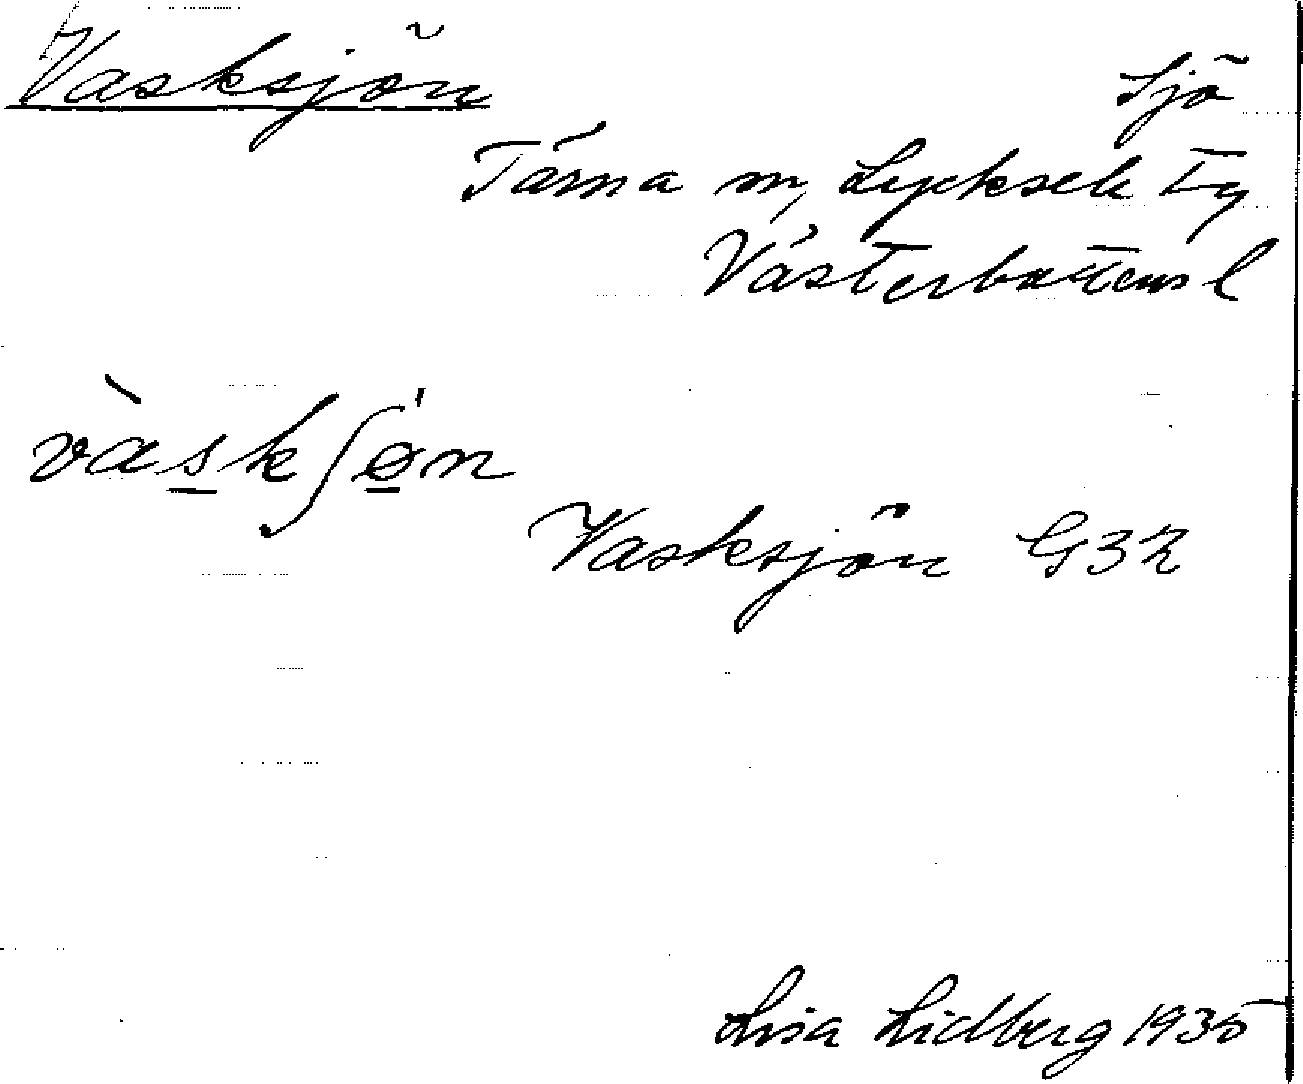 Vasksjön Sjö
Tärna sn, Lycksele Tg
Västerbottens l
vàskʃøn
Vasksjön G32
Lisa Lidberg 1935